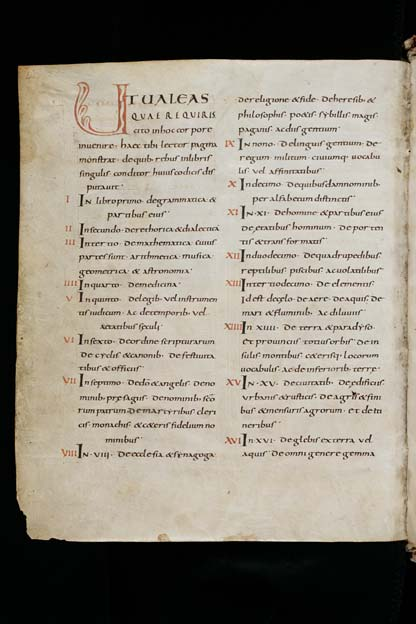 UTUALEAS
QUAEREQUIRIS
cito inhoccorpore
invenire · haec tibi lector pagina
monstrat · dequib; rebus inlibris
singulis conditor huius codicis dis
putavit ·
I In libro primo · degrammatica &
partibus eius
II Insecundo · derethorica & dialectica
III Intertio · demathematica cuius
partes sunt · arithmetica · musica ·
geometrica & astronomia ·
IIII Inquarto · demedicina ·
V Inquinto · delegib; vel instrumen
tis iudicum · ac detemporib; vel
aetatibus seculi ·
VI Insexto · deordine scripturarum
de cyclis & canonib; defestivita
tibus & officiis
VII Inseptimo · dedō & angelis · deno
minib; praesagis · denominib; scō
rum patrum demartyribus cleri
cis monachis & ceteris fidelium no
minibus
VIII In · VIII · de ecclesia & synagoga ·
dereligione & fide · deheresib; &
philosophis · poetis sybillis magis
paganis · ac diis gentium
IX In nono · delinguis gentium · de
regum militum civiumq; vocabu
lis vel affinitatibus
X Indecimo · dequibusdamnominib;
per alfabetum distinctis
XI In · XI · dehomine & partibus eius
deetatibus hominum · de porten
tis & transformatis
XII Induodecimo · dequadrupedibus
reptilibus piscibus ac volatilibus
XIII Intertiodecimo · de elementis
id est decelo · deaere · deaquis · de
mari & fluminib; ac diluviis
XIIII In XIIII · de terra & paradyso
et provinciis totius orbis · de in
sulis montibus & ceterisq; locorum
vocabulis ac de inferiorib; terre ·
XV In · XV · decivitatib; deaedificiis
urbanis & rusticis · deagris & fini
bus & mensuris agrorum · et de iti
neribus
XVI In · XVI · deglebis ex terra vel
aquis · de omni genere gemma